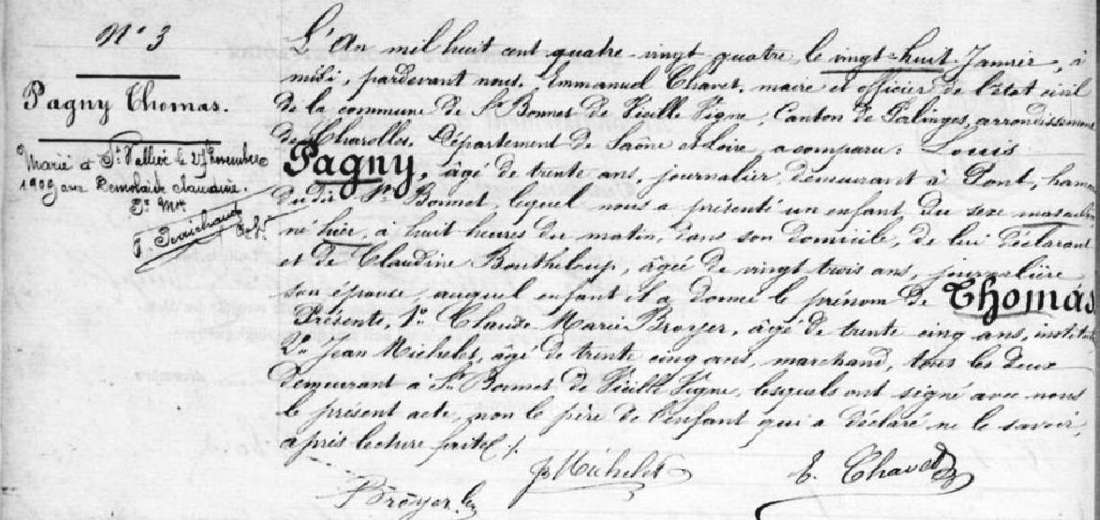 N° 3
Pagny Thomas.
Marié à St Vallier le 27 novembre
1909 avec Demolaire Claudine.
Dt Mon
L'An mil huit cent quatre-vingt quatre, le vingt-huit Janvier, à
midi, pardevant nous, Emmanuel Chavet, maire et officier de l'état civil
de la commune de St Bonnet de Vieille Vigne, Canton de Palinges, arrondissement
de Charolles, Département de Saône et Loire, a comparu: Louis
Pagny, âgé de trente ans, journalier, demeurant à Pont, hameau
du dit St Bonnet, lequel nous a présenté un enfant du sexe masculin
né hier, à huit heures du matin, dans son domicile, de lui déclarant
et de Claudine Boutheloup, âgée de vingt trois ans, journalière
son épouse, auquel enfant il a donné le prénom de Thomas
Présents, 1° Claude Marie Broyer, âgé de trente cinq ans, instituteur
2° Jean Michelet, âgé de trente cinq ans, marchand, tous les deux
demeurant à St Bonnet de Vieille Vigne, lesquels ont signé avec nous
le présent acte, non le père de l'enfant qui a déclaré ne le savoir,
après lecture faite ./.
Broyer Jn Michelet E. Chavet